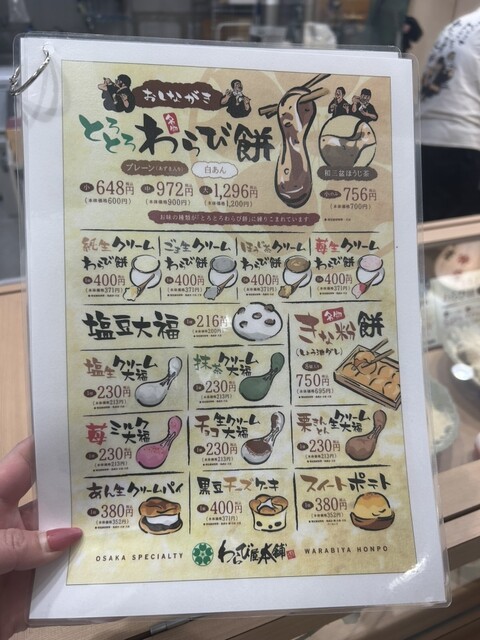 おしながき
名物
とろとろわらび餅
プレーン(あずき入り) 白あん
小 648円 中 972円 大 1,296円
(本体価格600円) (本体価格900円) (本体価格1,200円)
和三盆ほうじ茶
756円
(本体価格700円)
お味の種類が「とろとろわらび餅」に練りこまれています
純生クリームわらび餅 ごま生クリームわらび餅 ほうじ茶クリームわらび餅 苺生クリームわらび餅
400円 400円 400円 400円
(本体価格371円) (本体価格371円) (本体価格371円) (本体価格371円)
塩豆大福 216円
(本体価格200円)
名物
きな粉餅
(しょう油ダレ)
750円
(本体価格695円)
塩生クリーム大福 抹茶クリーム大福
230円 230円
(本体価格213円) (本体価格213円)
苺ミルク大福 チョコ生クリーム大福 栗きんとん生クリーム大福
230円 230円 230円
(本体価格213円) (本体価格213円) (本体価格213円)
あん生クリームパイ 黒豆チーズケーキ スイートポテト
380円 400円 380円
(本体価格352円) (本体価格371円) (本体価格352円)
OSAKA SPECIALTY わらび屋本舗 WARABIYA HONPO